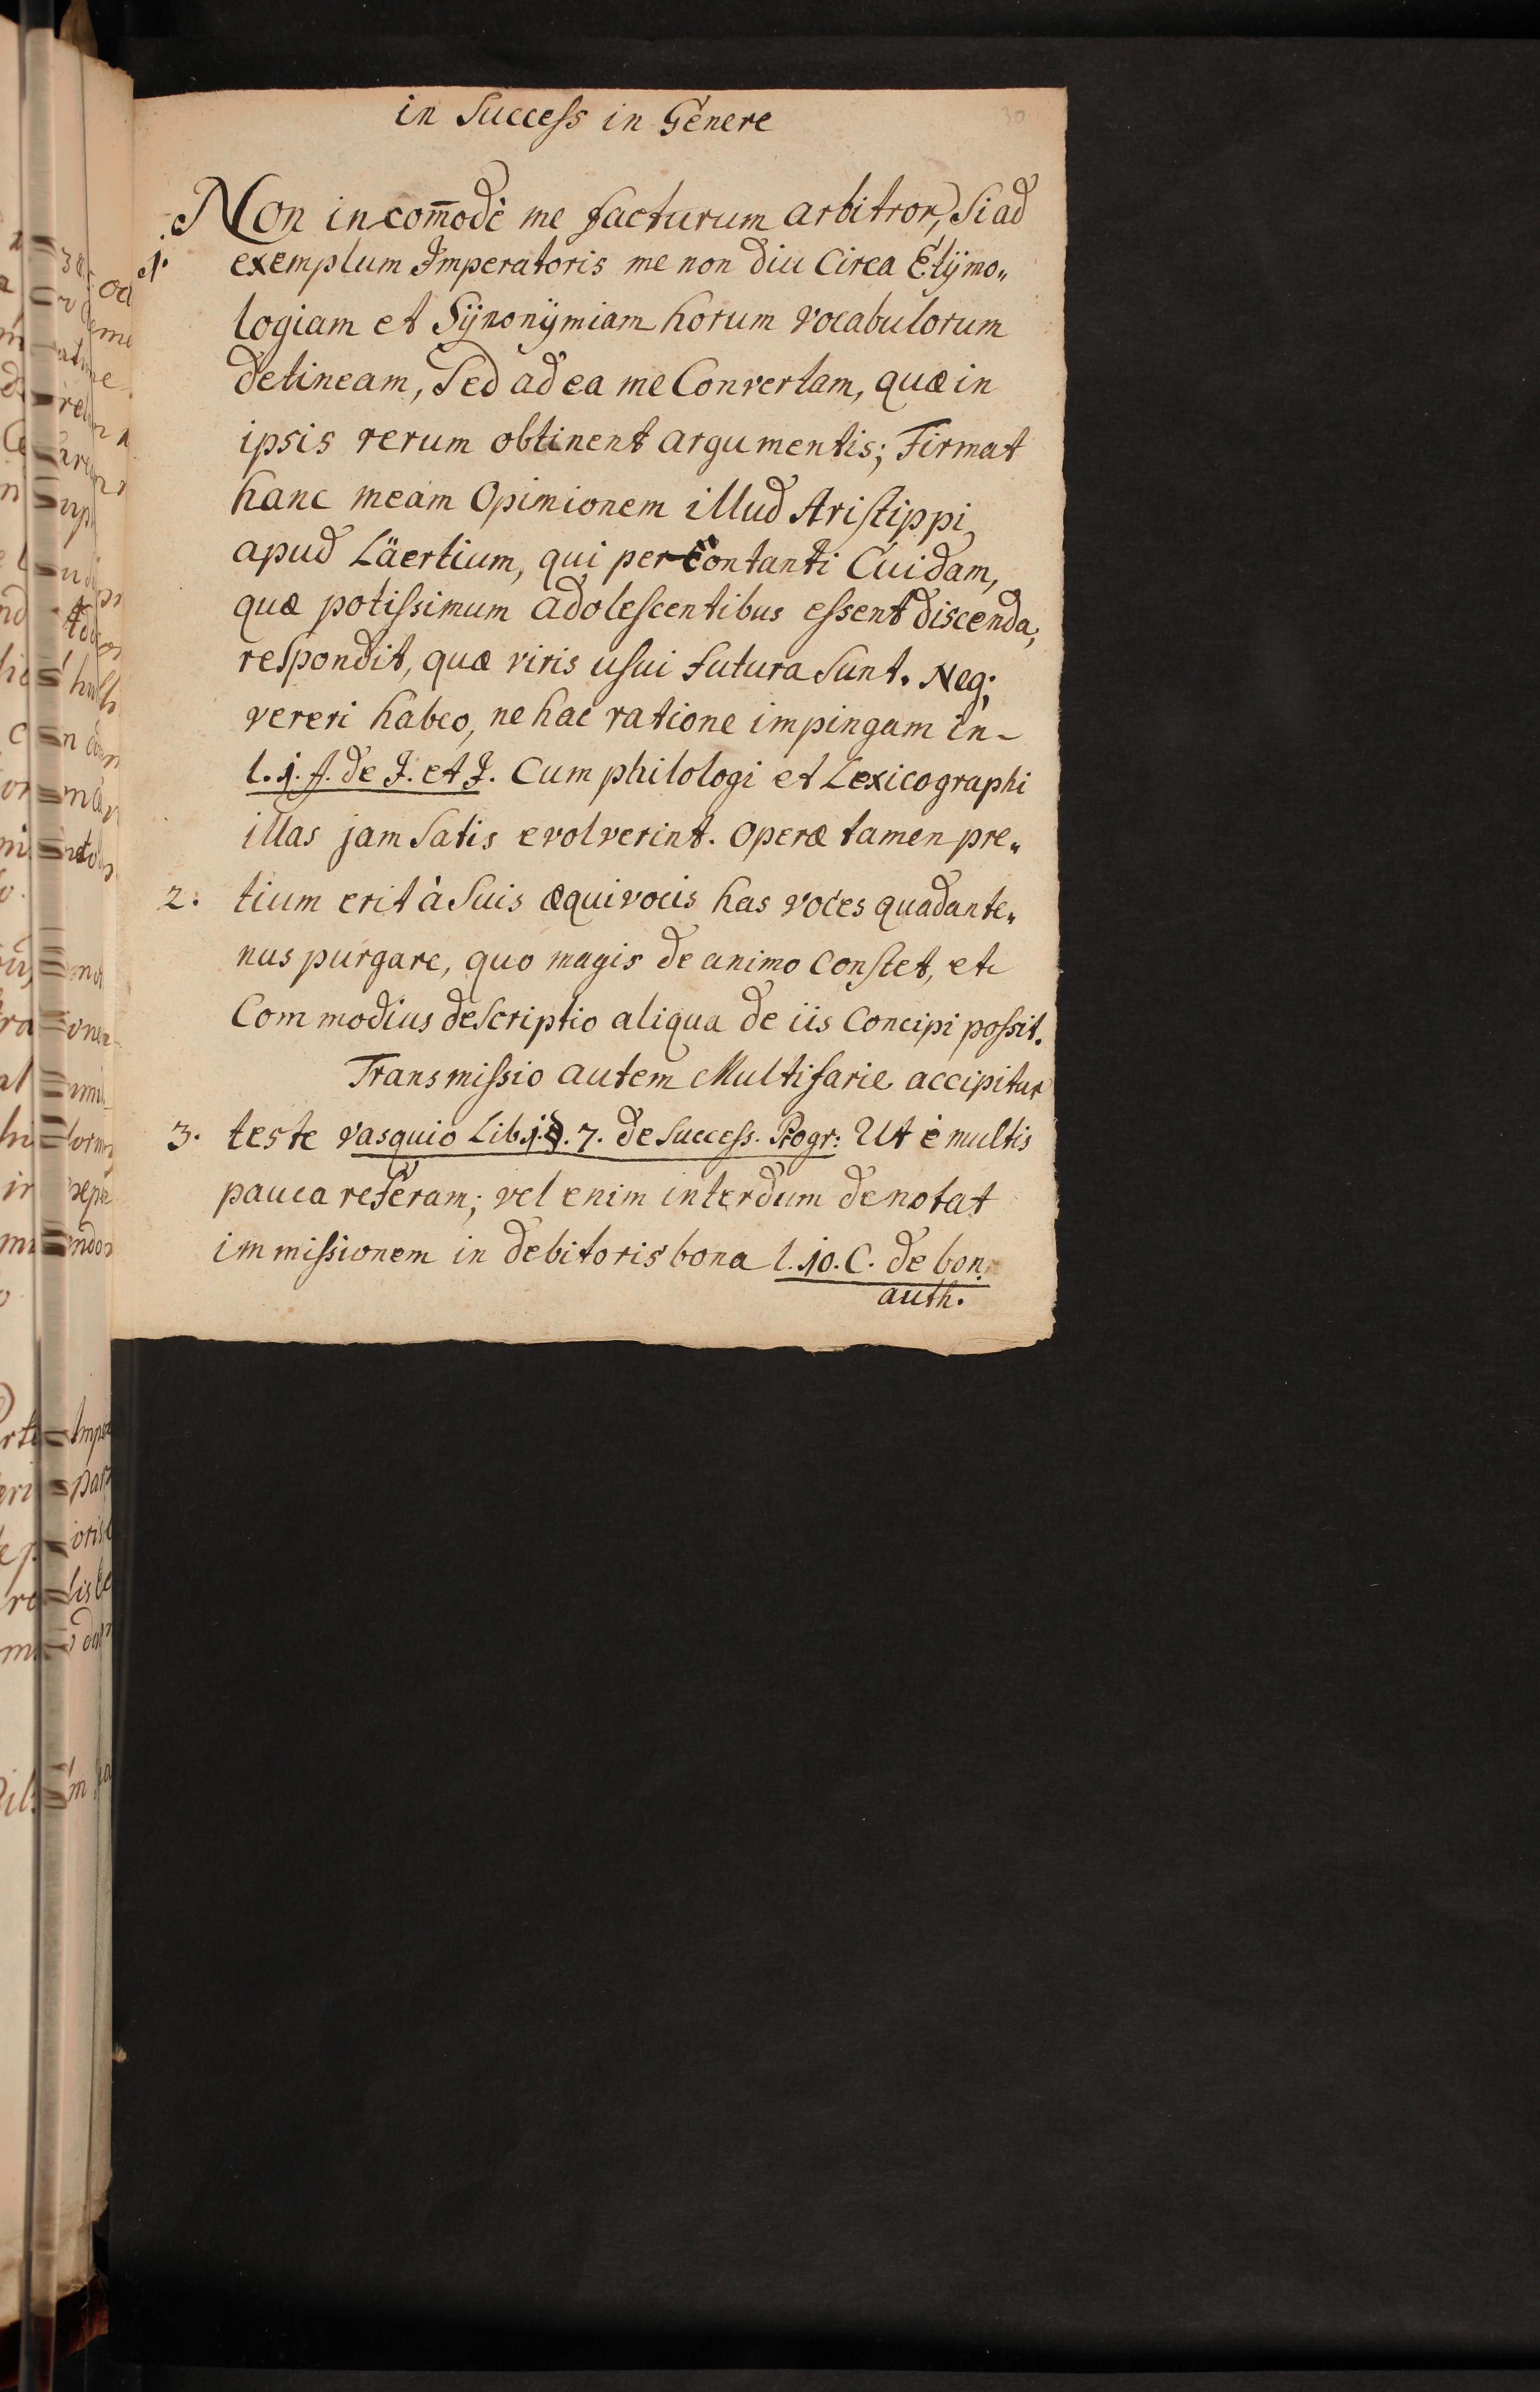 in Success in Genere
30
Non incom̄odè me facturum arbitror, Si ad
1. exemplum Imperatoris me non diu Circa Etÿmo„
logiam et Sÿnonÿmiam horum vocabulorum
detineam, Sed ad ea me Convertam, quæ in
ipsis rerum obtinent argumentis; Firmat
hanc meam Opinionem illud Aristippi
apud Läertium, qui percontanti Cuidam,
quæ potissimum adolescentibus essent discenda,
respondit, quæ viris usui futura Sunt. Neq;
vereri habeo, ne hac ratione impingam in
l. 1. ff. de J. et J. Cum philologi et Lexicographi
illas jam Satis evolverint. Operæ tamen pre„
2. tium erit à Suis æquivocis has voces quadante„
nus purgare, quo magis de animo Constet, et
Commodius descriptio aliqua de iis Concipi possit.
Transmissio autem Multifarie accipitur
3. teste vasquio Lib. 1. §. 7. de Success. Progr: Ut è multis
pauca referam; vel enim interdum denotat
immissionem in debitoris bona l. 10. C. de bon.
auth.